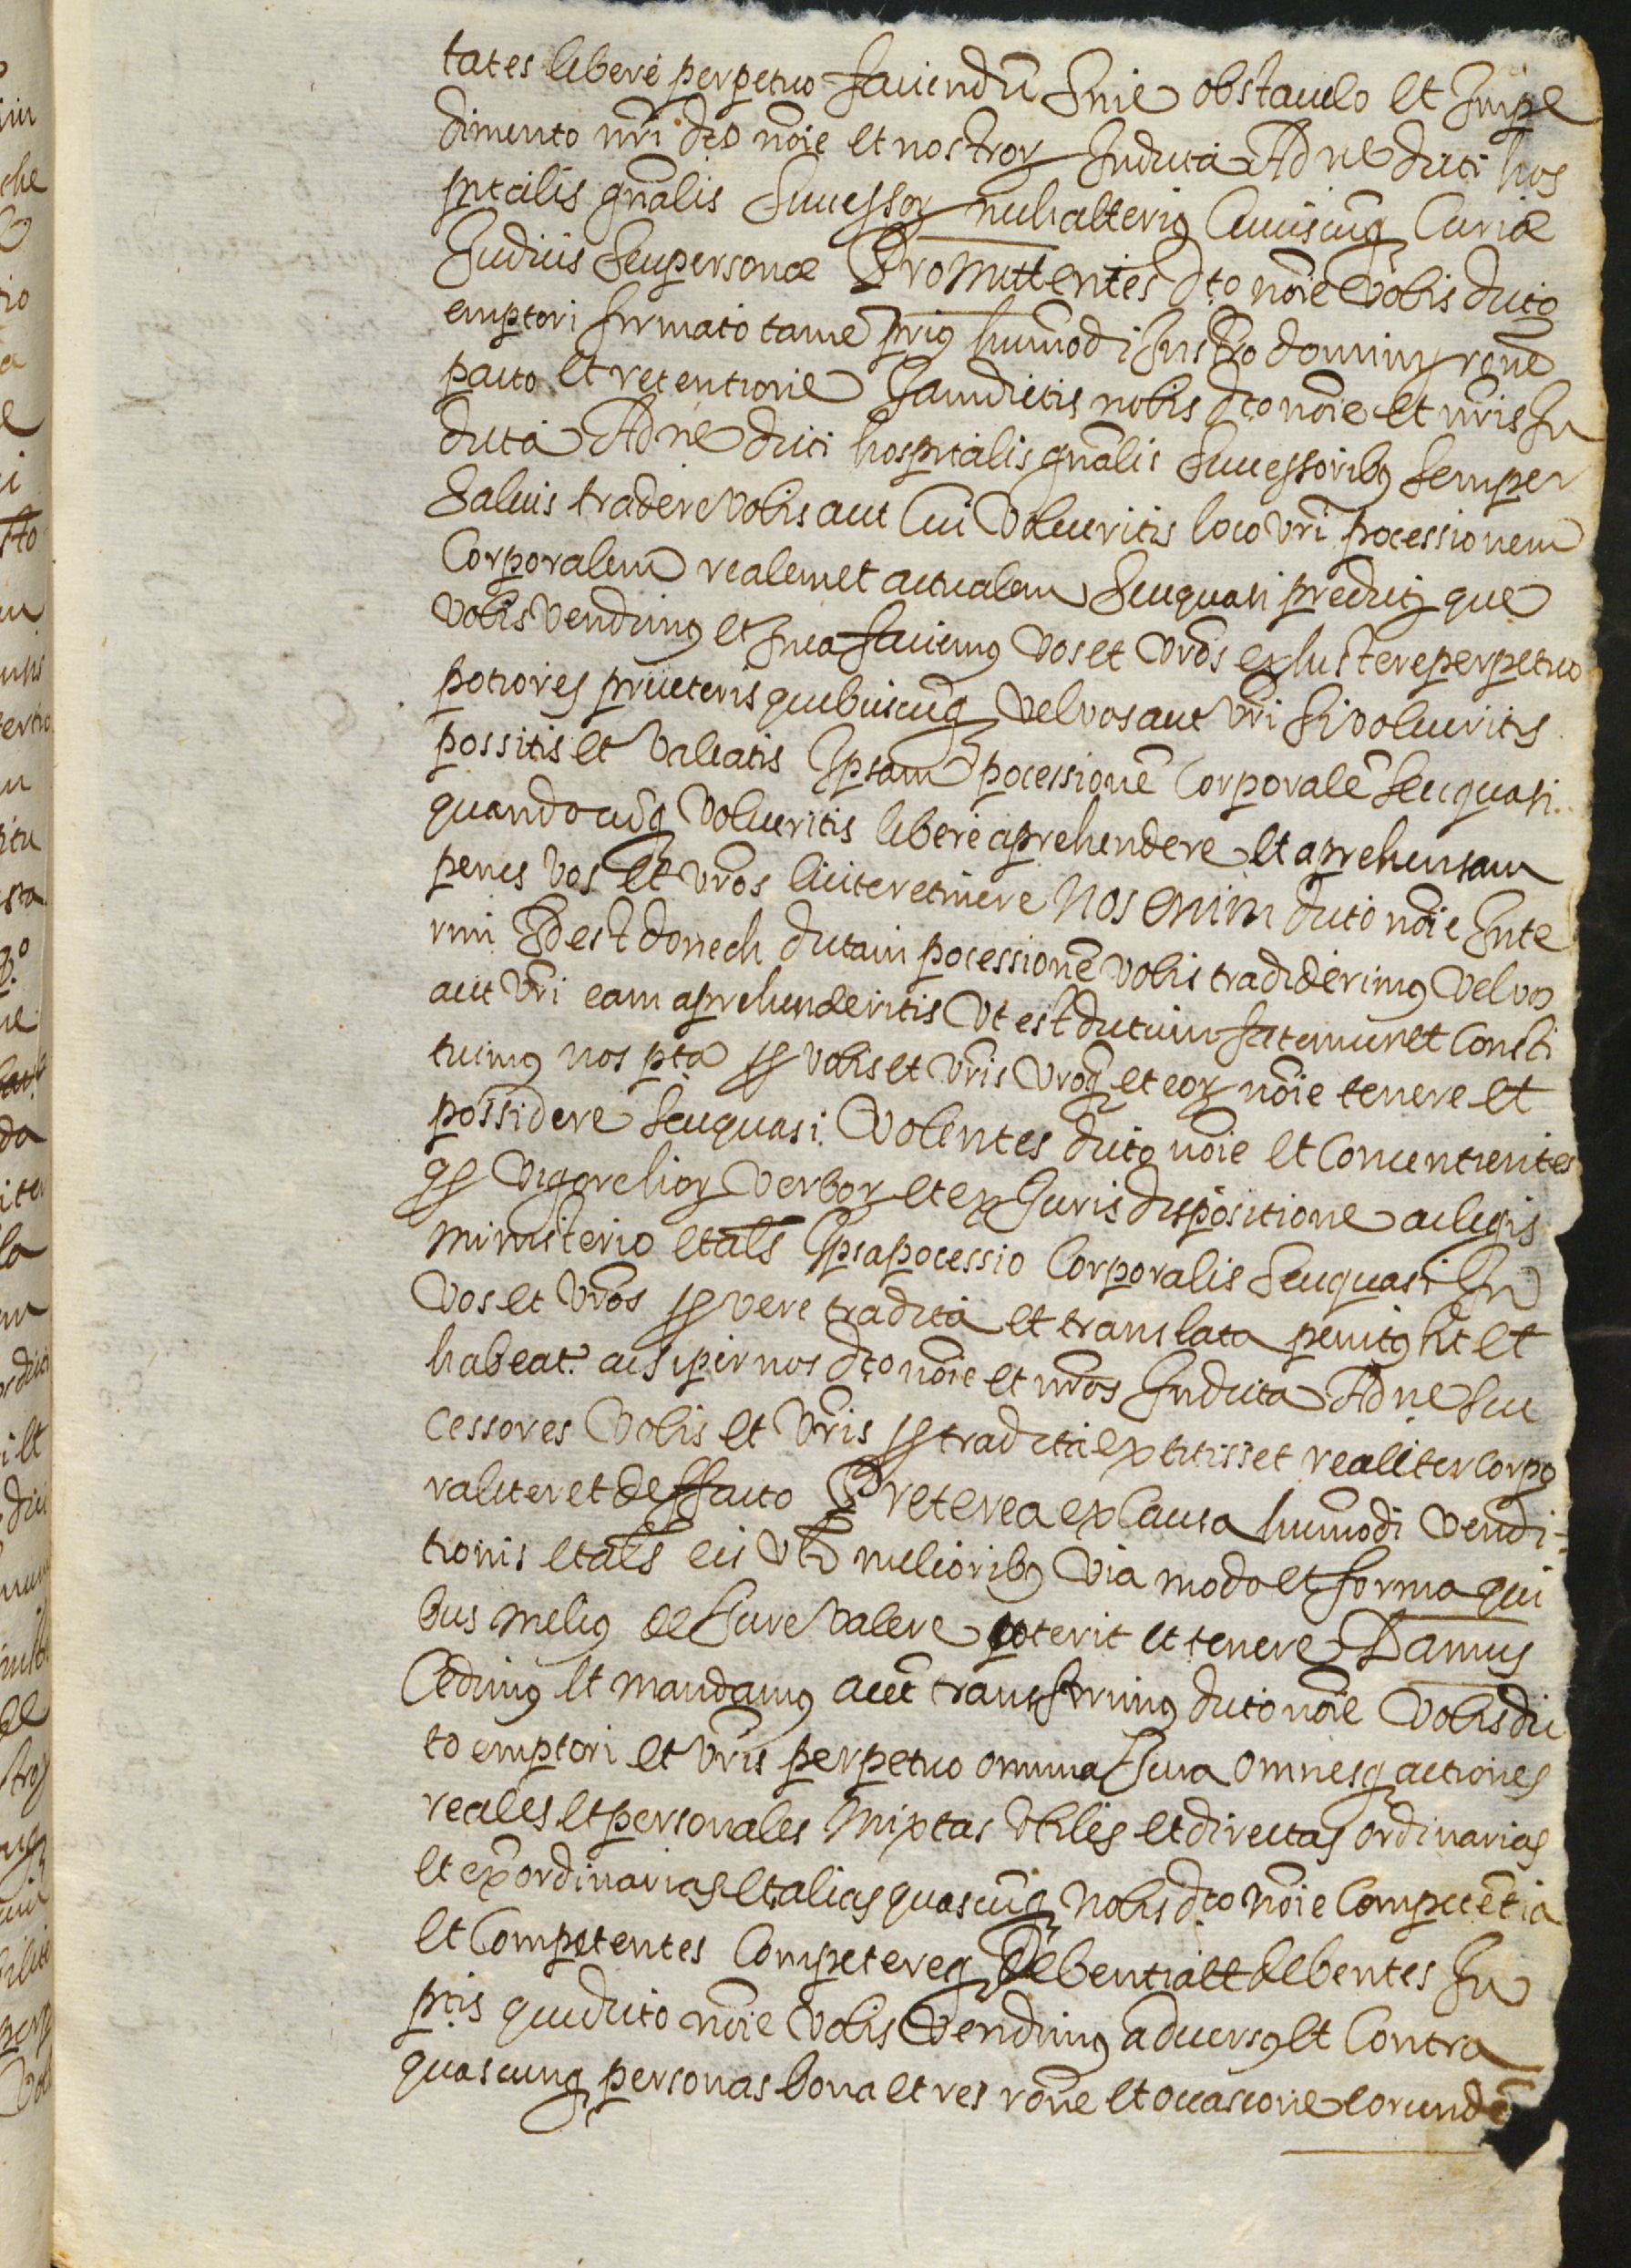 tates liberè perpetuo faciendũ Sine obstaculo et Impe
dimento nr̃i dc̃o nõie et nostror̃ Indicta Adne dicti hos
pitalis gñalis Successor̃ nuliᷓ alterius Cuiuscunq̃ Curiæ
Judicis Seu personæ Promittentes dc̃to nõie Vobis dicto
emptori firmato tamẽ prius huiusmodi Instr̃o dominij rõne
pacto et retentione Iamdictis nobis dc̃to nõie et nr̃is In
dicta Adne dicti hospitalis gñalis Successoribus Semper
Saluis tradere Vobis aut Cui Volueritis loco vr̃i pocessionem
Corporalem realem et actualem Seu quasi predictor̃ que
vobis vendimus et In ea faciemus vos et vr̃os existere perpetuo
potiores pre ceteris quibuscunq̃ Vel vos aut vr̃i Si volueritis
possitis et Valeatis Ipsam pocessionẽ Corporalẽ Seu quasi
quandocũq̃ Volueritis liberè aprehendere et aprehensam
penes vos et vr̃os licite retinere Nos enim dicto nõie Inte
rim Id est donech dictam pocessionẽ vobis tradiderimus Vel vos
aut vr̃i eam aprehenderitis Vt est dictum fatemur et Consti
tuimus nos pr̃ta p̱ vobis et vr̃is Vroq̃ et eor̃ nõie tenere et
possidere Seu quasi. Volentes dicto nõie et Concentientes
q̃ p̱ vigore hor̃ Verbor̃ et ex Juris dispositione ac legis
ministerio et als̃ Ipsa pocessio Corporalis Seu quasi In
Vos et Vr̃os p̱ vere tradita et translata penitus sit et
habeat.ʳ ac si per nos dc̃to nõie et nr̃os Indicta Adne Suc
cessores Vobis et Vr̃is p̱ tradita extitisset realiter corpo
raliter et de ffacto Preterea ex Causa huiusmodi Vendi=
tionis et als̃ eis Vbi melioribus Via modo et forma qui
bus melius de Iure Valere poterit et tenere Damus
Cedimus et mandamus aut transferimus dicto nõie Vobis dic
to emptori et Vr̃is perpetuo omnia Iura omnesq̃ actiones
reales et personales mixtas Vtiles et directas ordinarias
et ex̃ordinarias et alias quascunq̃ Nobis dc̃to nõie Competẽtia
et Competentes Competereq̃ Debentia et debentes In
pr̃tis que dicto nõie Vobis Vendimus aduersus et Contra
quascunq̃ personas bona et res rõne et occasione eorundẽ